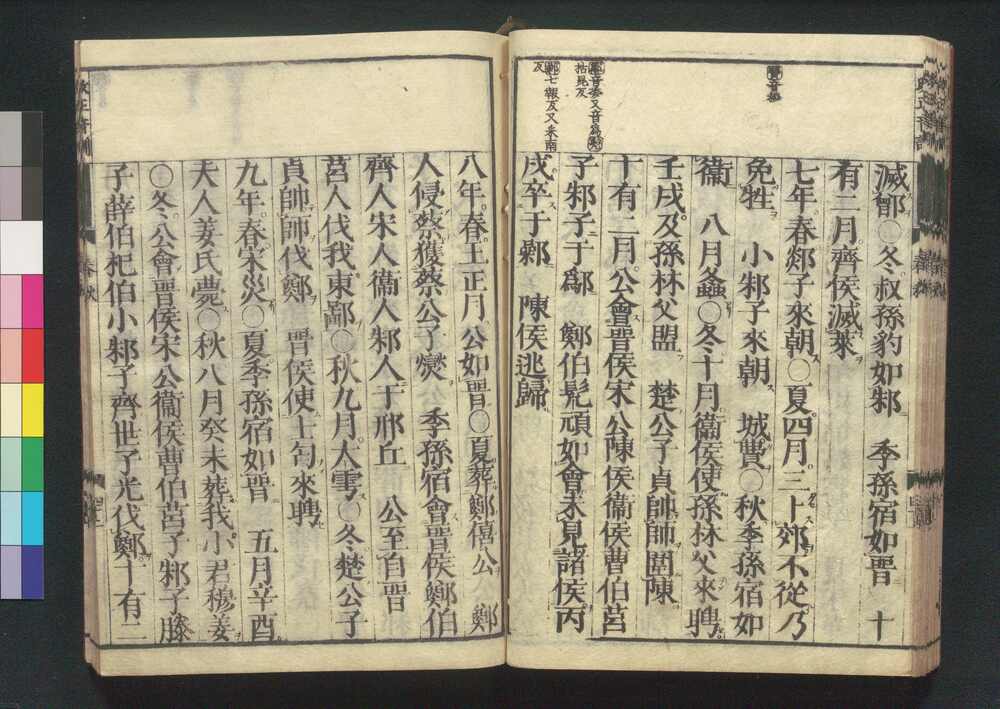 費音秘
鄫音參又音爲
髡苦昆反
鄵七報反又采南反
滅鄫○冬叔孫豹如邾　季孫宿如晉　十
有二月齊侯滅萊
七年春郯子來朝○夏四月三卜郊不從乃
免牲　小邾子來朝　城費○秋季孫宿如
衞　八月螽○冬十月衞侯使孫林父來聘
壬戌及孫林父盟　楚公子貞帥師圍陳
十有二月公會晉侯宋公陳侯衞侯曹伯莒
子邾子于鄬　鄭伯髡頑如會未見諸侯丙
戌卒于鄵　陳侯逃歸
八年春王正月公如晉○夏葬鄭僖公　鄭
人侵蔡獲蔡公子燮　季孫宿會晉侯鄭伯
齊人宋人衞人邾人于邢丘　公至自晉
莒人伐我東鄙○秋九月大雩○冬楚公子
貞帥師伐鄭　晉侯使士匄來聘
九年春宋災○夏季孫宿如晉　五月辛酉
夫人姜氏薨○秋八月癸未葬我小君穆姜
○冬公會晉侯宋公衞侯曹伯莒子邾子滕
子薛伯杞伯小邾子齊世子光伐鄭十有二